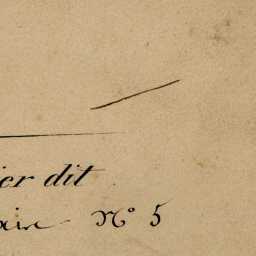 ier dit
aire N° 5